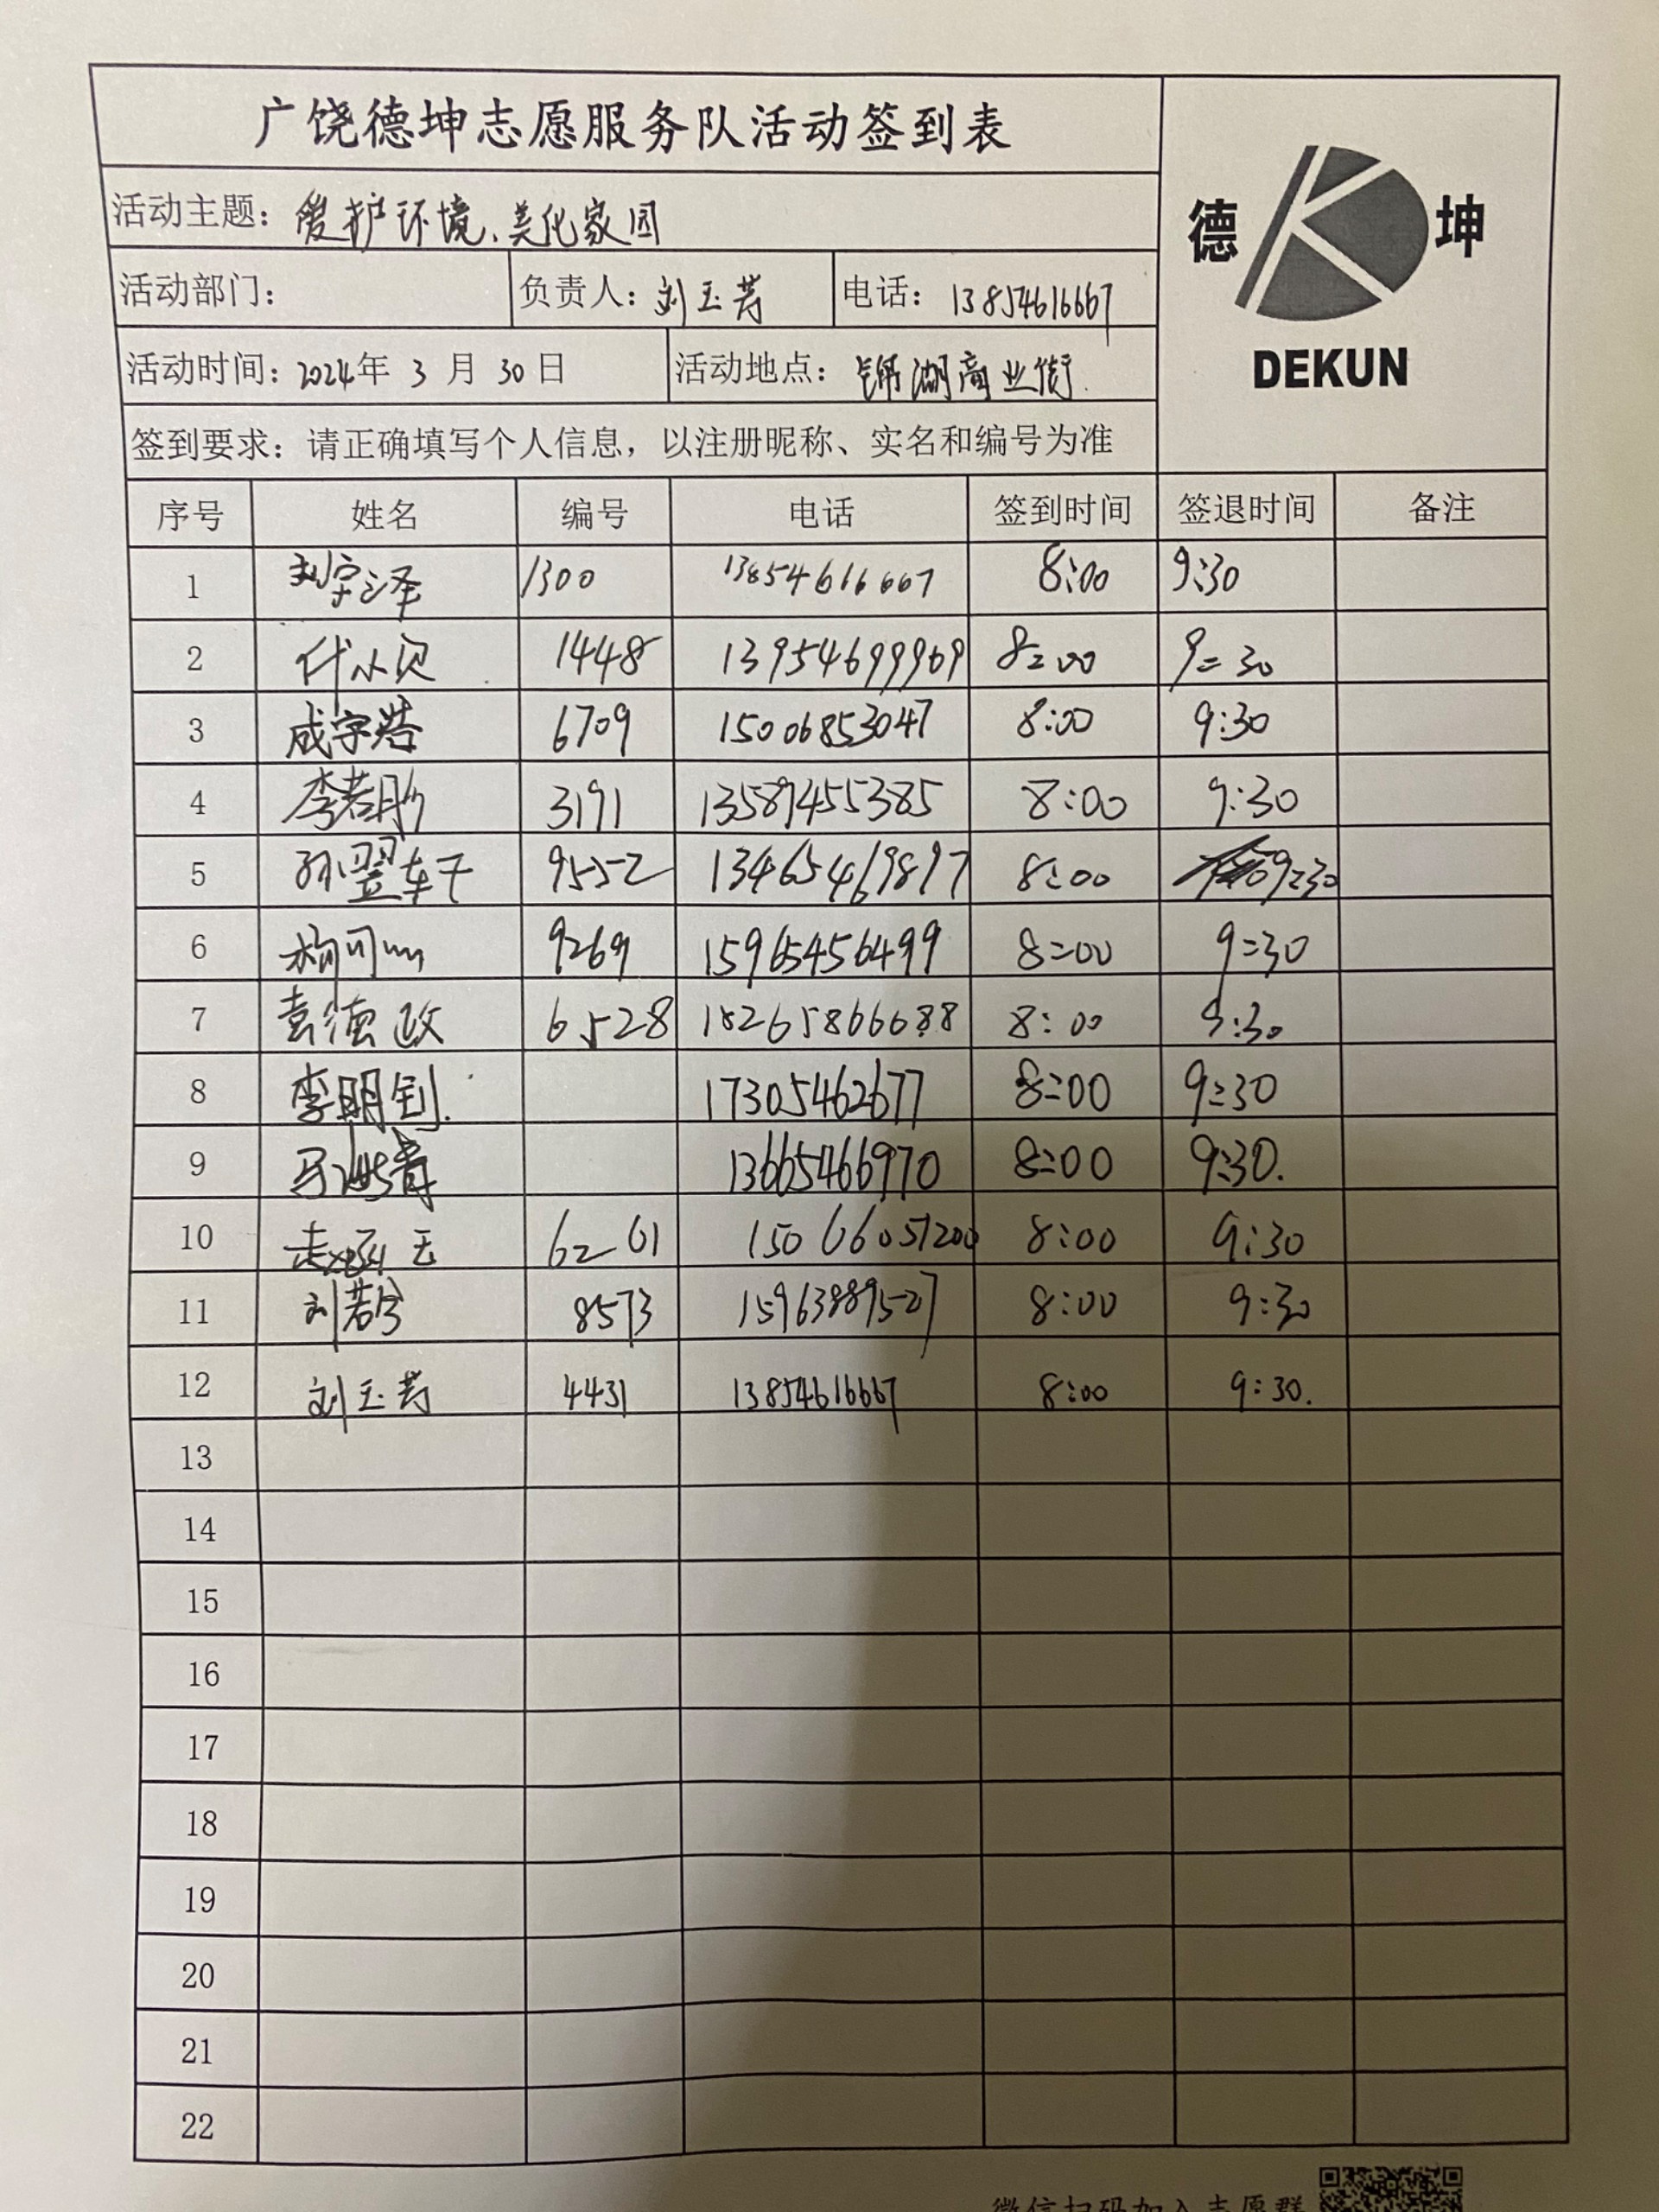 广饶德坤志愿服务队活动签到表
德 坤
DEKUN
活动主题：爱护环境、美化家园
活动部门： 负责人：刘玉芳 电话：13854616667
活动时间：2024年 3 月 30 日 活动地点：锦湖商业街
签到要求：请正确填写个人信息，以注册昵称、实名和编号为准
序号 姓名 编号 电话 签到时间 签退时间 备注
1 刘宇泽 1300 13854616667 8:00 9:30
2 代小贝 1448 13954699969 8:00 9:30
3 成宇浩 6709 15006853047 8:00 9:30
4 李若彤 3191 13589455385 8:00 9:30
5 孙翌轩 9552 13465469897 8:00 9:30
6 杨可 9269 15965456499 8:00 9:30
7 袁德政 6528 18265866688 8:00 9:30
8 李明钊 17305462677 8:00 9:30
9 马 13665466970 8:00 9:30
10 6261 15066051200 8:00 9:30
11 刘若 8573 15963889527 8:00 9:30
12 刘玉芳 4431 13854616667 8:00 9:30
13
14
15
16
17
18
19
20
21
22
微信扫码加入志愿群